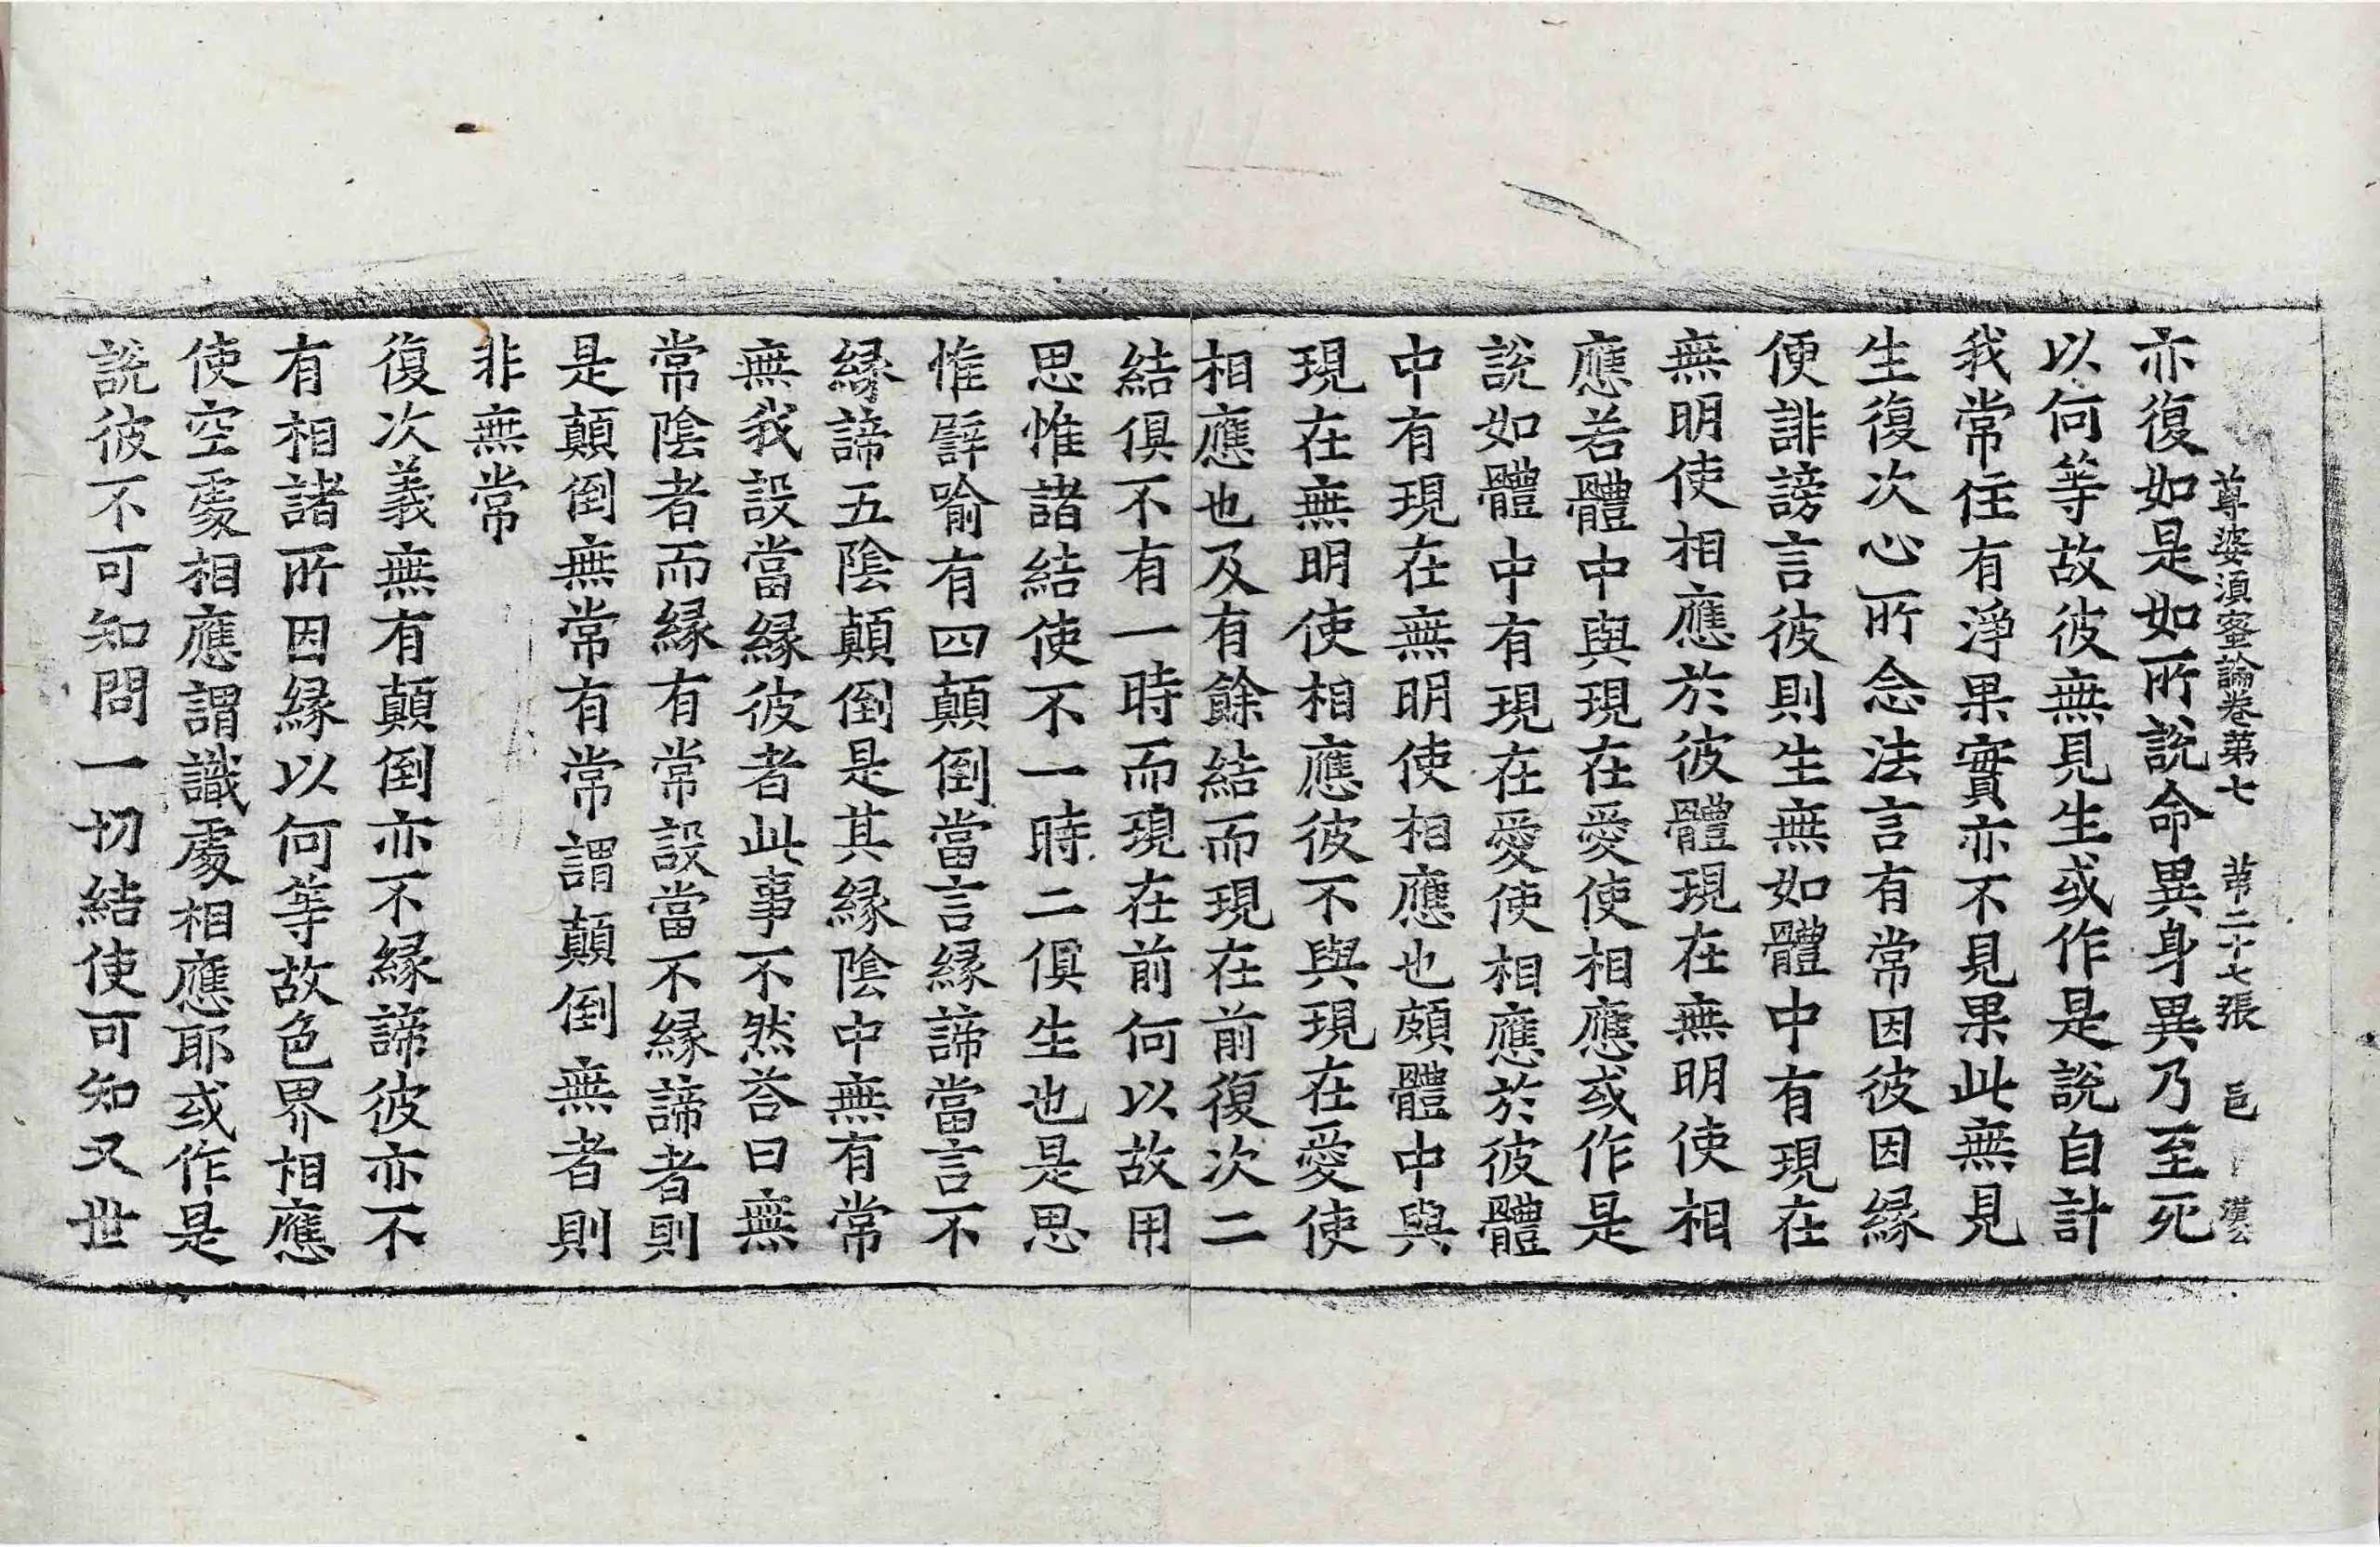 尊婆湏蜜論卷第七 苐二十七張 邑 漢公
亦復如是如所說命異身異乃至死
以何等故彼無見生或作是說自計
我常住有淨果實亦不見果此無見
生復次心所念法言有常因彼因縁
便誹謗言彼則生無如體中有現在
無明使相應於彼體現在無明使相
應若體中與現在愛使相應或作是
說如體中有現在愛使相應於彼體
中有現在無明使相應也頗體中與
現在無明使相應彼不與現在愛使
相應也及有餘結而現在前復次二
結俱不有一時而現在前何以故用
思惟諸結使不一時二俱生也是思
惟譬喻有四顛倒當言縁諦當言不
縁諦五陰顛倒是其縁陰中無有常
無我設當縁彼者此事不然荅曰無
常陰者而縁有常設當不縁諦者則
是顛倒無常有常謂顛倒無者則
非無常
復次義無有顛倒亦不縁諦彼亦不
有相諸所因縁以何等故色界相應
使空處相應謂識處相應耶或作是
說彼不可知問一切結使可知又世